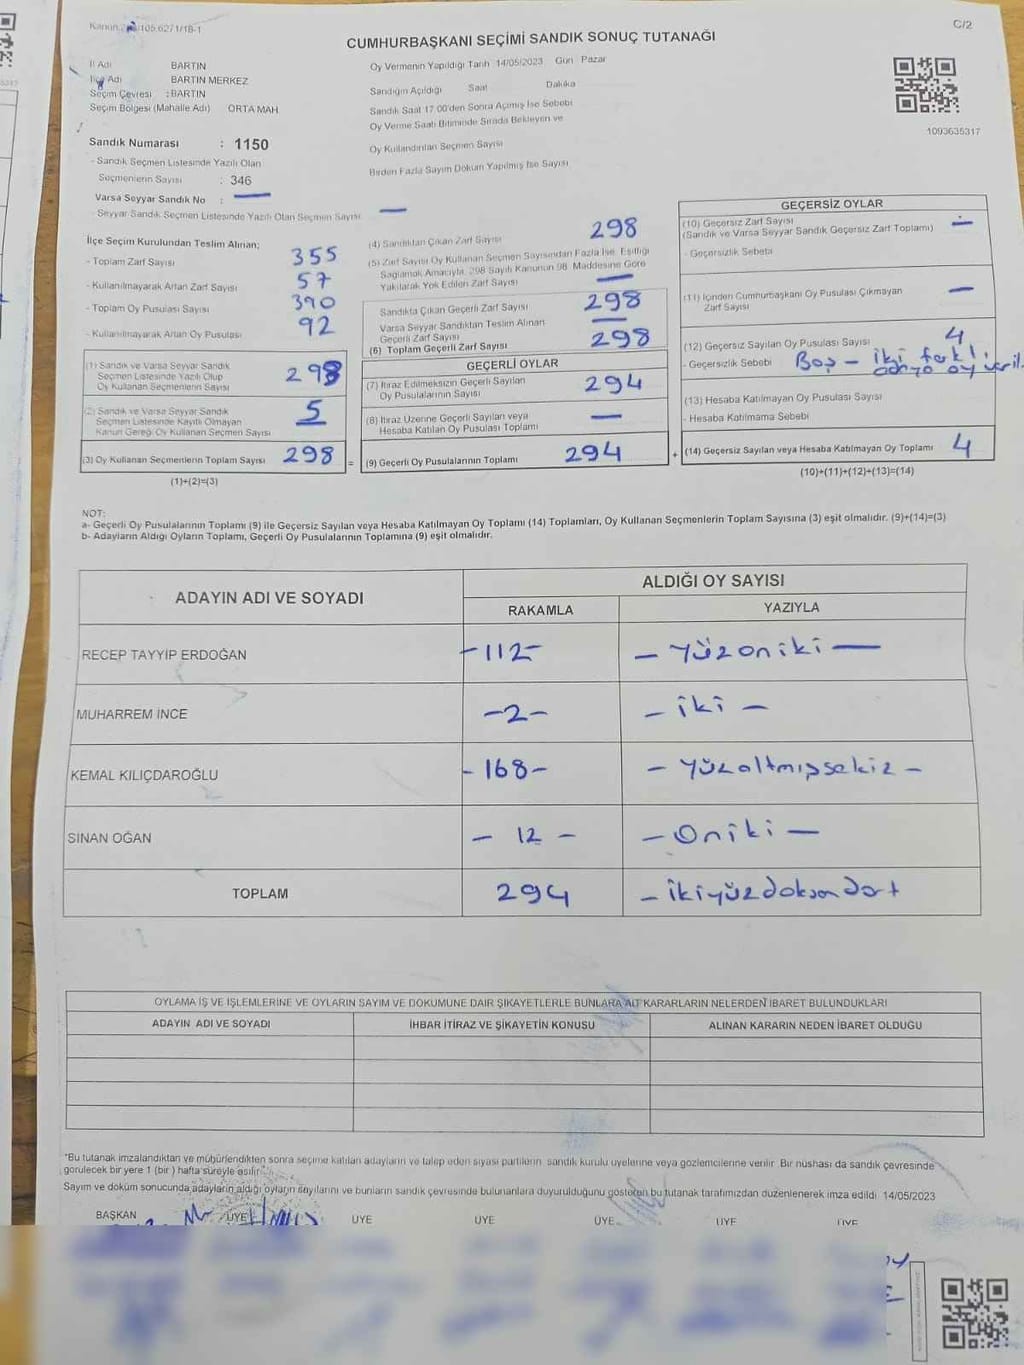 C/2
CUMHURBAŞKANI SEÇİMİ SANDIK SONUÇ TUTANAĞI
İl Adı BARTIN
İlçe Adı BARTIN MERKEZ
Seçim Çevresi : BARTIN
Seçim Bölgesi (Mahalle Adı) ORTA MAH
Sandık Numarası : 1150
- Sandık Seçmen Listesinde Yazılı Olan
Seçmenlerin Sayısı : 346
Varsa Seyyar Sandık No : —
- Seyyar Sandık Seçmen Listesinde Yazılı Olan Seçmen Sayısı —
Oy Vermenin Yapıldığı Tarih 14/05/2023 Gün Pazar
Sandığın Açıldığı Saat Dakika
Sandık Saat 17.00'den Sonra Açımış İse Sebebi
Oy Verme Saati Bitiminde Sırada Bekleyen ve
Oy Kullandırılan Seçmen Sayısı
Birden Fazla Sayım Döküm Yapılmış İse Sayısı
1093635317
İlçe Seçim Kurulundan Teslim Alınan;
- Toplam Zarf Sayısı 355
- Kullanılmayarak Artan Zarf Sayısı 57
- Toplam Oy Pusulası Sayısı 390
- Kullanılmayarak Artan Oy Pusulası 92
(1) Sandık ve Varsa Seyyar Sandık
Seçmen Listesinde Yazılı Olup
Oy Kullanan Seçmenlerin Sayısı
(2) Sandık ve Varsa Seyyar Sandık
Seçmen Listesinde Kayıtlı Olmayan
Kanun Gereği Oy Kullanan Seçmen Sayısı 5
(3) Oy Kullanan Seçmenlerin Toplam Sayısı 298 =
(1)+(2)=(3)
(4) Sandıktan Çıkan Zarf Sayısı 298
(5) Zarf Sayısı Oy Kullanan Seçmen Sayısından Fazla İse, Eşitliği
Sağlamak Amacıyla, 298 Sayılı Kanunun 98. Maddesine Göre
Yakılarak Yok Edilen Zarf Sayısı —
Sandıkta Çıkan Geçerli Zarf Sayısı 298
Varsa Seyyar Sandıktan Teslim Alınan
Geçerli Zarf Sayısı —
(6) Toplam Geçerli Zarf Sayısı 298
GEÇERLİ OYLAR
(7) İtiraz Edilmeksizin Geçerli Sayılan
Oy Pusulalarının Sayısı 294
(8) İtiraz Üzerine Geçerli Sayılan veya
Hesaba Katılan Oy Pusulası Toplamı —
(9) Geçerli Oy Pusulalarının Toplamı 294 +
GEÇERSİZ OYLAR
(10) Geçersiz Zarf Sayısı
(Sandık ve Varsa Seyyar Sandık Geçersiz Zarf Toplamı) —
- Geçersizlik Sebebi
(11) İçinden Cumhurbaşkanı Oy Pusulası Çıkmayan
Zarf Sayısı —
(12) Geçersiz Sayılan Oy Pusulası Sayısı 4
- Geçersizlik Sebebi Boş - iki farklı
oy veril.
(13) Hesaba Katılmayan Oy Pusulası Sayısı
- Hesaba Katılmama Sebebi
(14) Geçersiz Sayılan veya Hesaba Katılmayan Oy Toplamı 4
(10)+(11)+(12)+(13)=(14)
NOT:
a- Geçerli Oy Pusulalarının Toplamı (9) ile Geçersiz Sayılan veya Hesaba Katılmayan Oy Toplamı (14) Toplamları, Oy Kullanan Seçmenlerin Toplam Sayısına (3) eşit olmalıdır. (9)+(14)=(3)
b- Adayların Aldığı Oyların Toplamı, Geçerli Oy Pusulalarının Toplamına (9) eşit olmalıdır.
ADAYIN ADI VE SOYADI
ALDIĞI OY SAYISI
RAKAMLA YAZIYLA
RECEP TAYYİP ERDOĞAN -112- - Yüzoniki -
MUHARREM İNCE -2- - iki -
KEMAL KILIÇDAROĞLU -168- - Yüzaltmışsekiz -
SİNAN OĞAN - 12 - - Oniki -
TOPLAM 294 - ikiyüzdoksandört
OYLAMA İŞ VE İŞLEMLERİNE VE OYLARIN SAYIM VE DÖKÜMÜNE DAİR ŞİKAYETLERLE BUNLARA AİT KARARLARIN NELERDEN İBARET BULUNDUKLARI
ADAYIN ADI VE SOYADI İHBAR İTİRAZ VE ŞİKAYETİN KONUSU ALINAN KARARIN NEDEN İBARET OLDUĞU
"Bu tutanak imzalandıktan ve mühürlendikten sonra seçime katılan adayların ve talep eden siyasi partilerin sandık kurulu üyelerine veya gözlemcilerine verilir. Bir nüshası da sandık çevresinde
görülecek bir yere 1 (bir) hafta süreyle asılır."
Sayım ve döküm sonucunda adayların aldığı oyların sayılarını ve bunların sandık çevresinde bulunanlara duyurulduğunu gösteren bu tutanak tarafımızdan düzenlenerek imza edildi. 14/05/2023
BAŞKAN ÜYE ÜYE ÜYE ÜYE ÜYE ÜYE